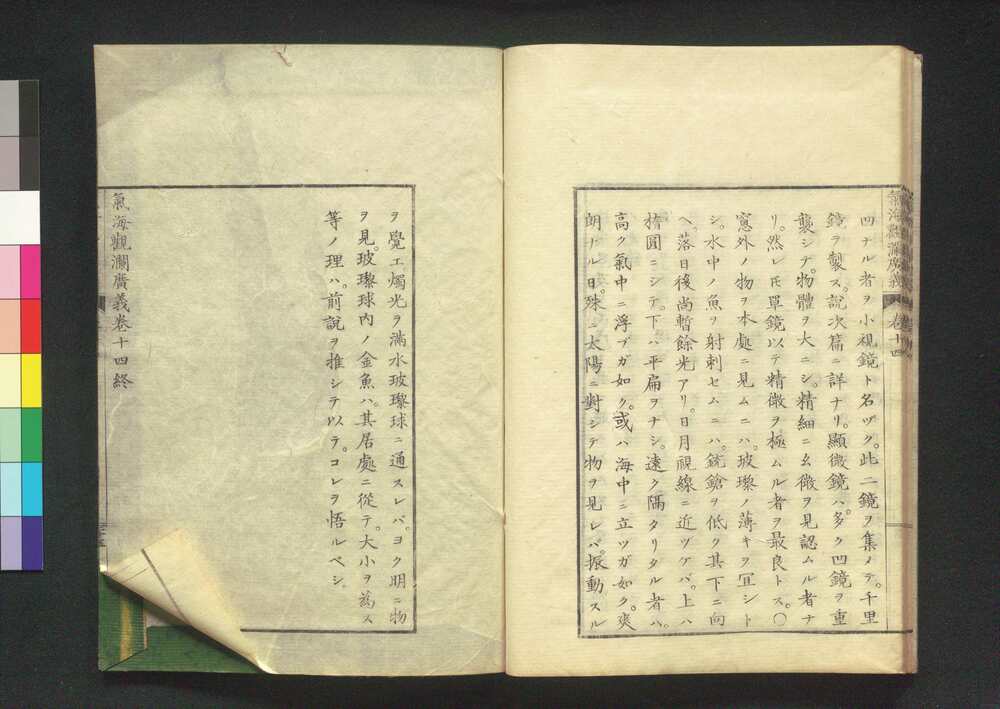 氣海觀瀾廣義 卷十四
凹ナル者ヲ小視鏡ト名ヅク。此二鏡ヲ集メテ。千里
鏡ヲ製ス。説次篇ニ詳ナリ。顯微鏡ハ。多ク凹鏡ヲ重
襲シテ。物體ヲ大ニシ。精細ニ幺微ヲ見認ムル者ナ
リ。然レ𪜈單鏡以テ精微ヲ極ムル者ヲ最良トス。〇
窻外ノ物ヲ本處ニ見ムニハ。玻瓈ノ薄キヲ冝シト
シ。水中ノ魚ヲ射刺セムニハ。銃鎗ヲ低ク其下ニ向
ヘ。落日後尚暫餘光アリ。日月視線ニ近ヅケバ。上ハ
橢圓ニシテ。下ハ平扁ヲナシ。遠ク隔タリタル者ハ。
高ク氣中ニ浮ブガ如ク。或ハ海中ニ立ツガ如ク。爽
朗ナル日。殊ニ太陽ニ對シテ物ヲ見レバ。振動スル
ヲ覺エ燭光ヲ滿水玻瓈球ニ通スレバ。ヨク明ニ物
ヲ見。玻瓈球内ノ金魚ハ。其居處ニ從テ。大小ヲ爲ス
等ノ理ハ。前説ヲ推シテ以テ。コレヲ悟ルベシ。
氣海觀瀾廣義卷十四終